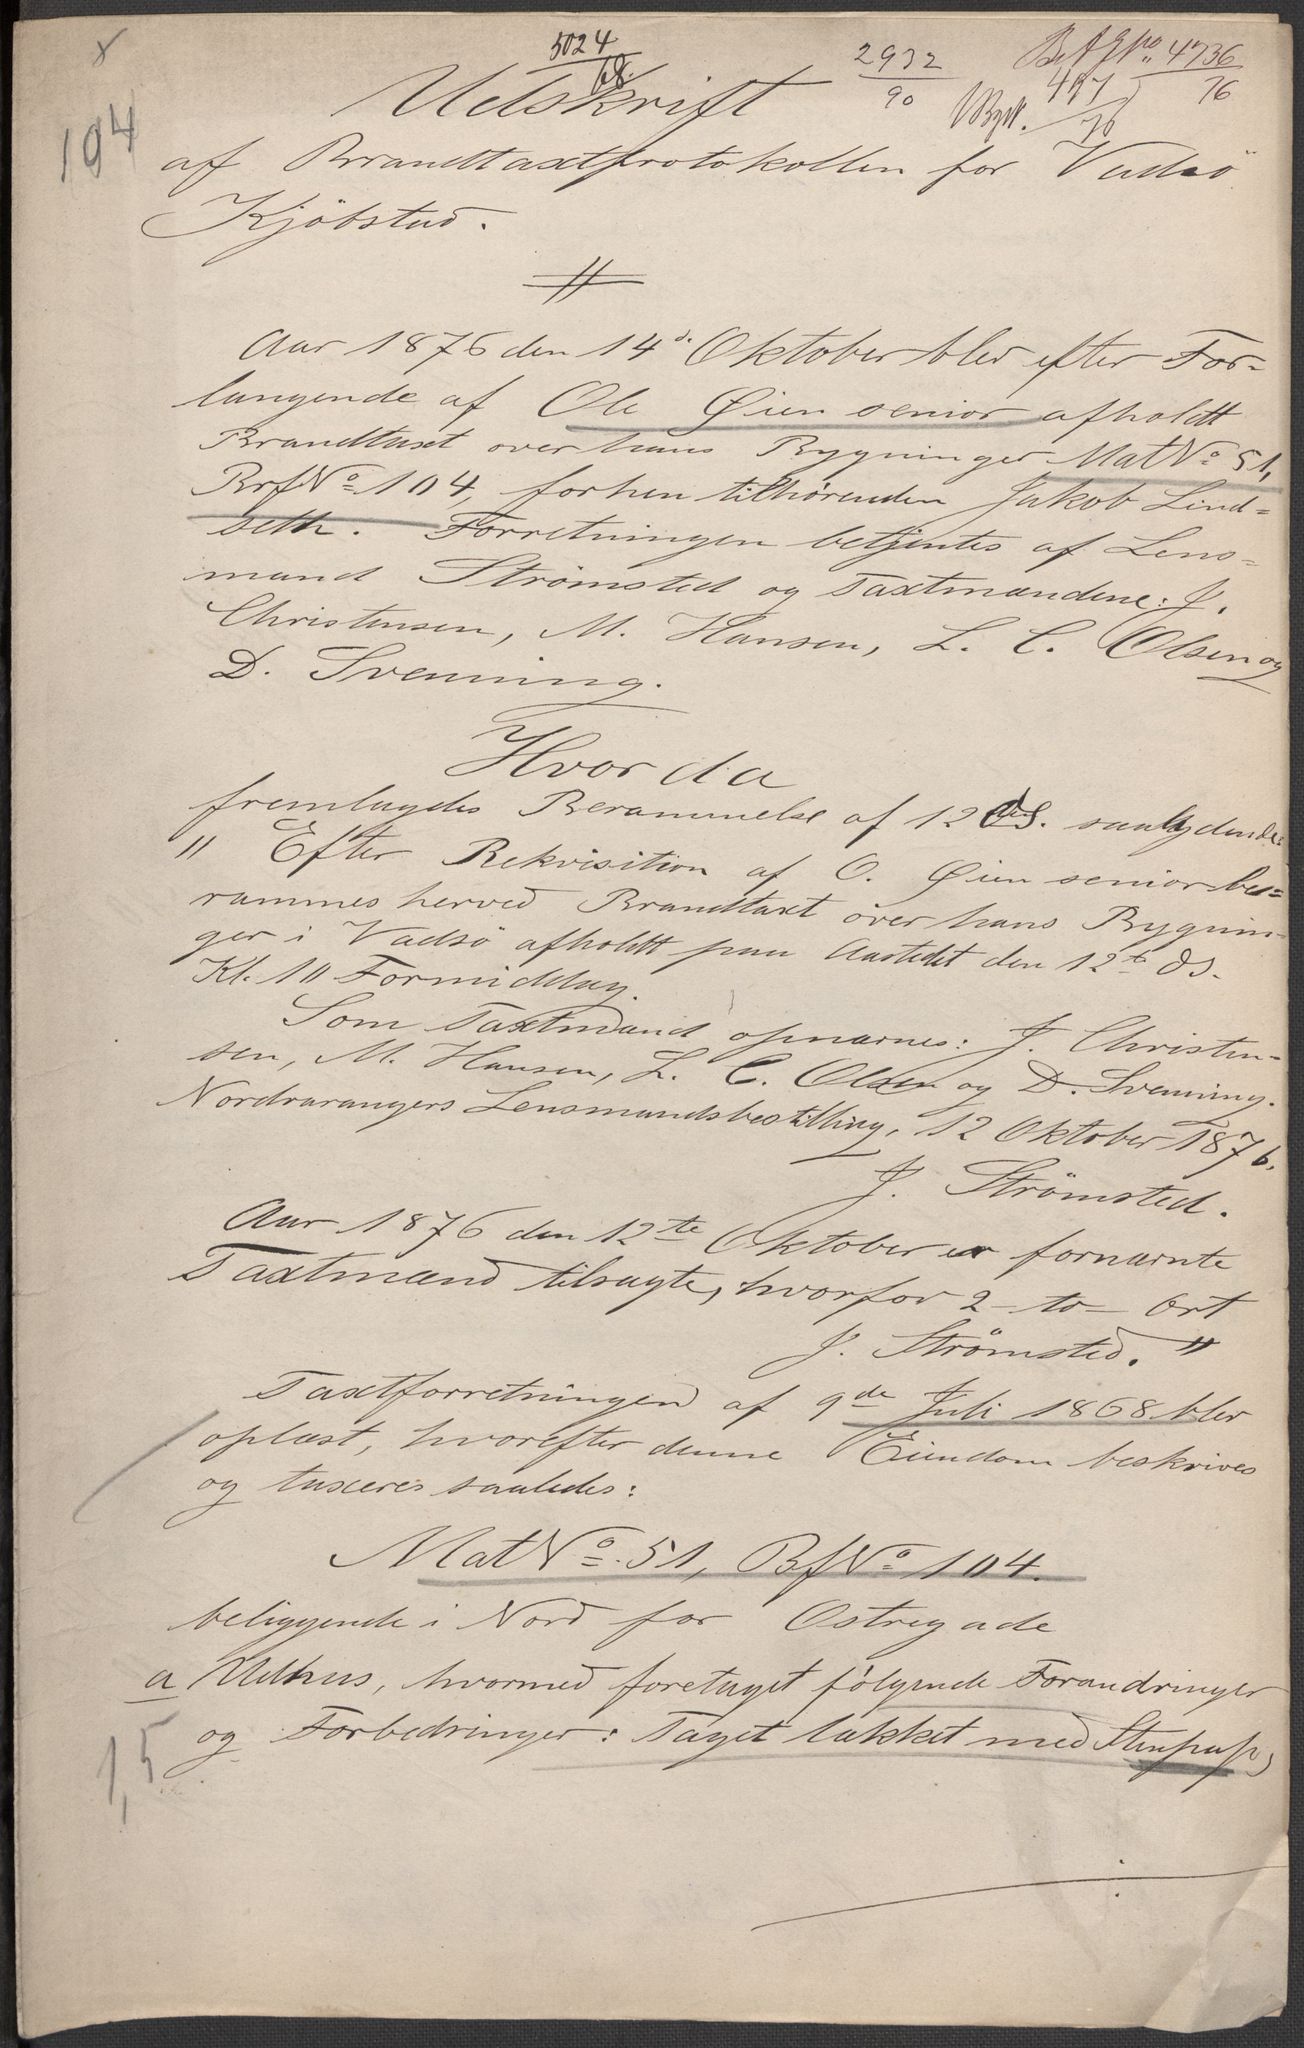 5024
68.
2932
90
4736
76
497
76
104
Udskrift
af Brandtaxtprotokollen for Vadsö
Kjöbstad.
Aar 1876 den 14de Oktober blev efter For-
langende af Ole Øien senior afholdt
Brandtaxt over hans Bygninger Mat No 51,
Brf No 104, forhen tilhörende Jakob Lind-
seth. Forretningen betjentes af Lens-
mand Strömsted og Taxtmændene: J.
Christensen, M. Hansen, L. C. Olsen og
D. Svenning.
Hvorda
fremlagdes Berammelse af 12 ds. saalydende:
" Efter Rekvisition af O. Øien senior be-
rammes herved Brandtaxt over hans Bygnin-
ger i Vadsö afholdt paa Aastedet den 12te ds.
Kl. 10 Formiddag.
Som Taxtmænd opnævnes: J. Christen-
sen, M. Hansen, L. C. Olsen og D. Svenning.
Nordvarangers Lensmandsbestilling, 12 Oktober 1876.
J. Strömsted.
Aar 1876 den 12te Oktober er fornævnte
Taxtmænd tilsagte, hvorfor 2 - to - Ort
J. Strömsted. "
Taxtforretningen af 9de Juli 1868 blev
oplæst, hvorefter denne Eiendom beskrives
og taxeres saaledes:
Mat No. 51, Bf No 104.
beliggende i Nord for Östregade
a Udhus, hvormed foretaget fölgende Forandringer
og Forbedringer: Taget lakket med Stenpap,
1,5